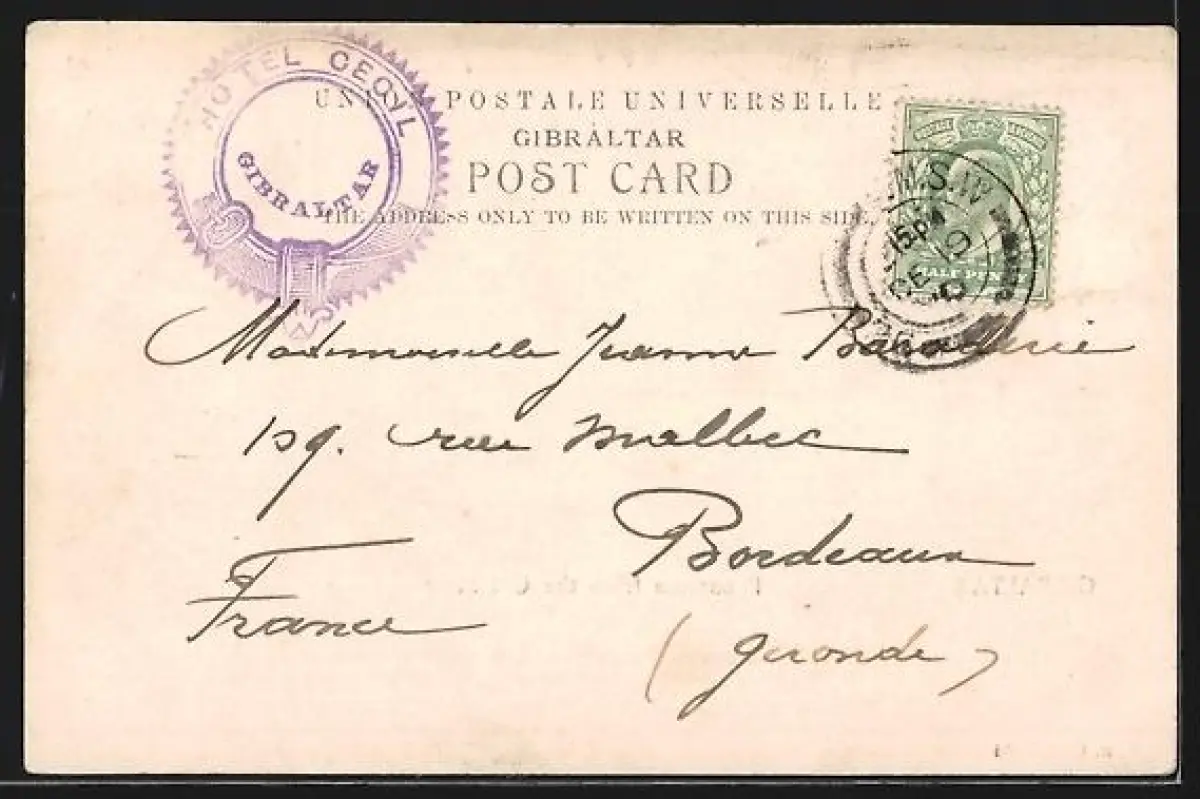 HOTEL CECYL
GIBRALTAR
UNION POSTALE UNIVERSELLE
GIBRALTAR
POST CARD
THE ADDRESS ONLY TO BE WRITTEN ON THIS SIDE.
HALF PENNY
Mademoiselle Jeanne
159. rue Malbec
Bordeaux
France
(Gironde)